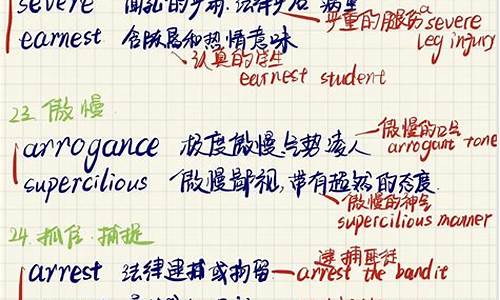 severe 的 法律 严重的腿伤 a severe
earnest 含 热情意味 leg injury
认真的学生
earnest student
23. 傲慢
arrogance 极度傲慢.气势凌人 傲慢的口气
arrogant tone
supercilious 傲慢鄙视,带有超然的态度
傲慢的神气
supercilious manner
24. 抓住.捕捉
逮捕匪徒
arrest 法律逮捕或拘留 arrest the bandit